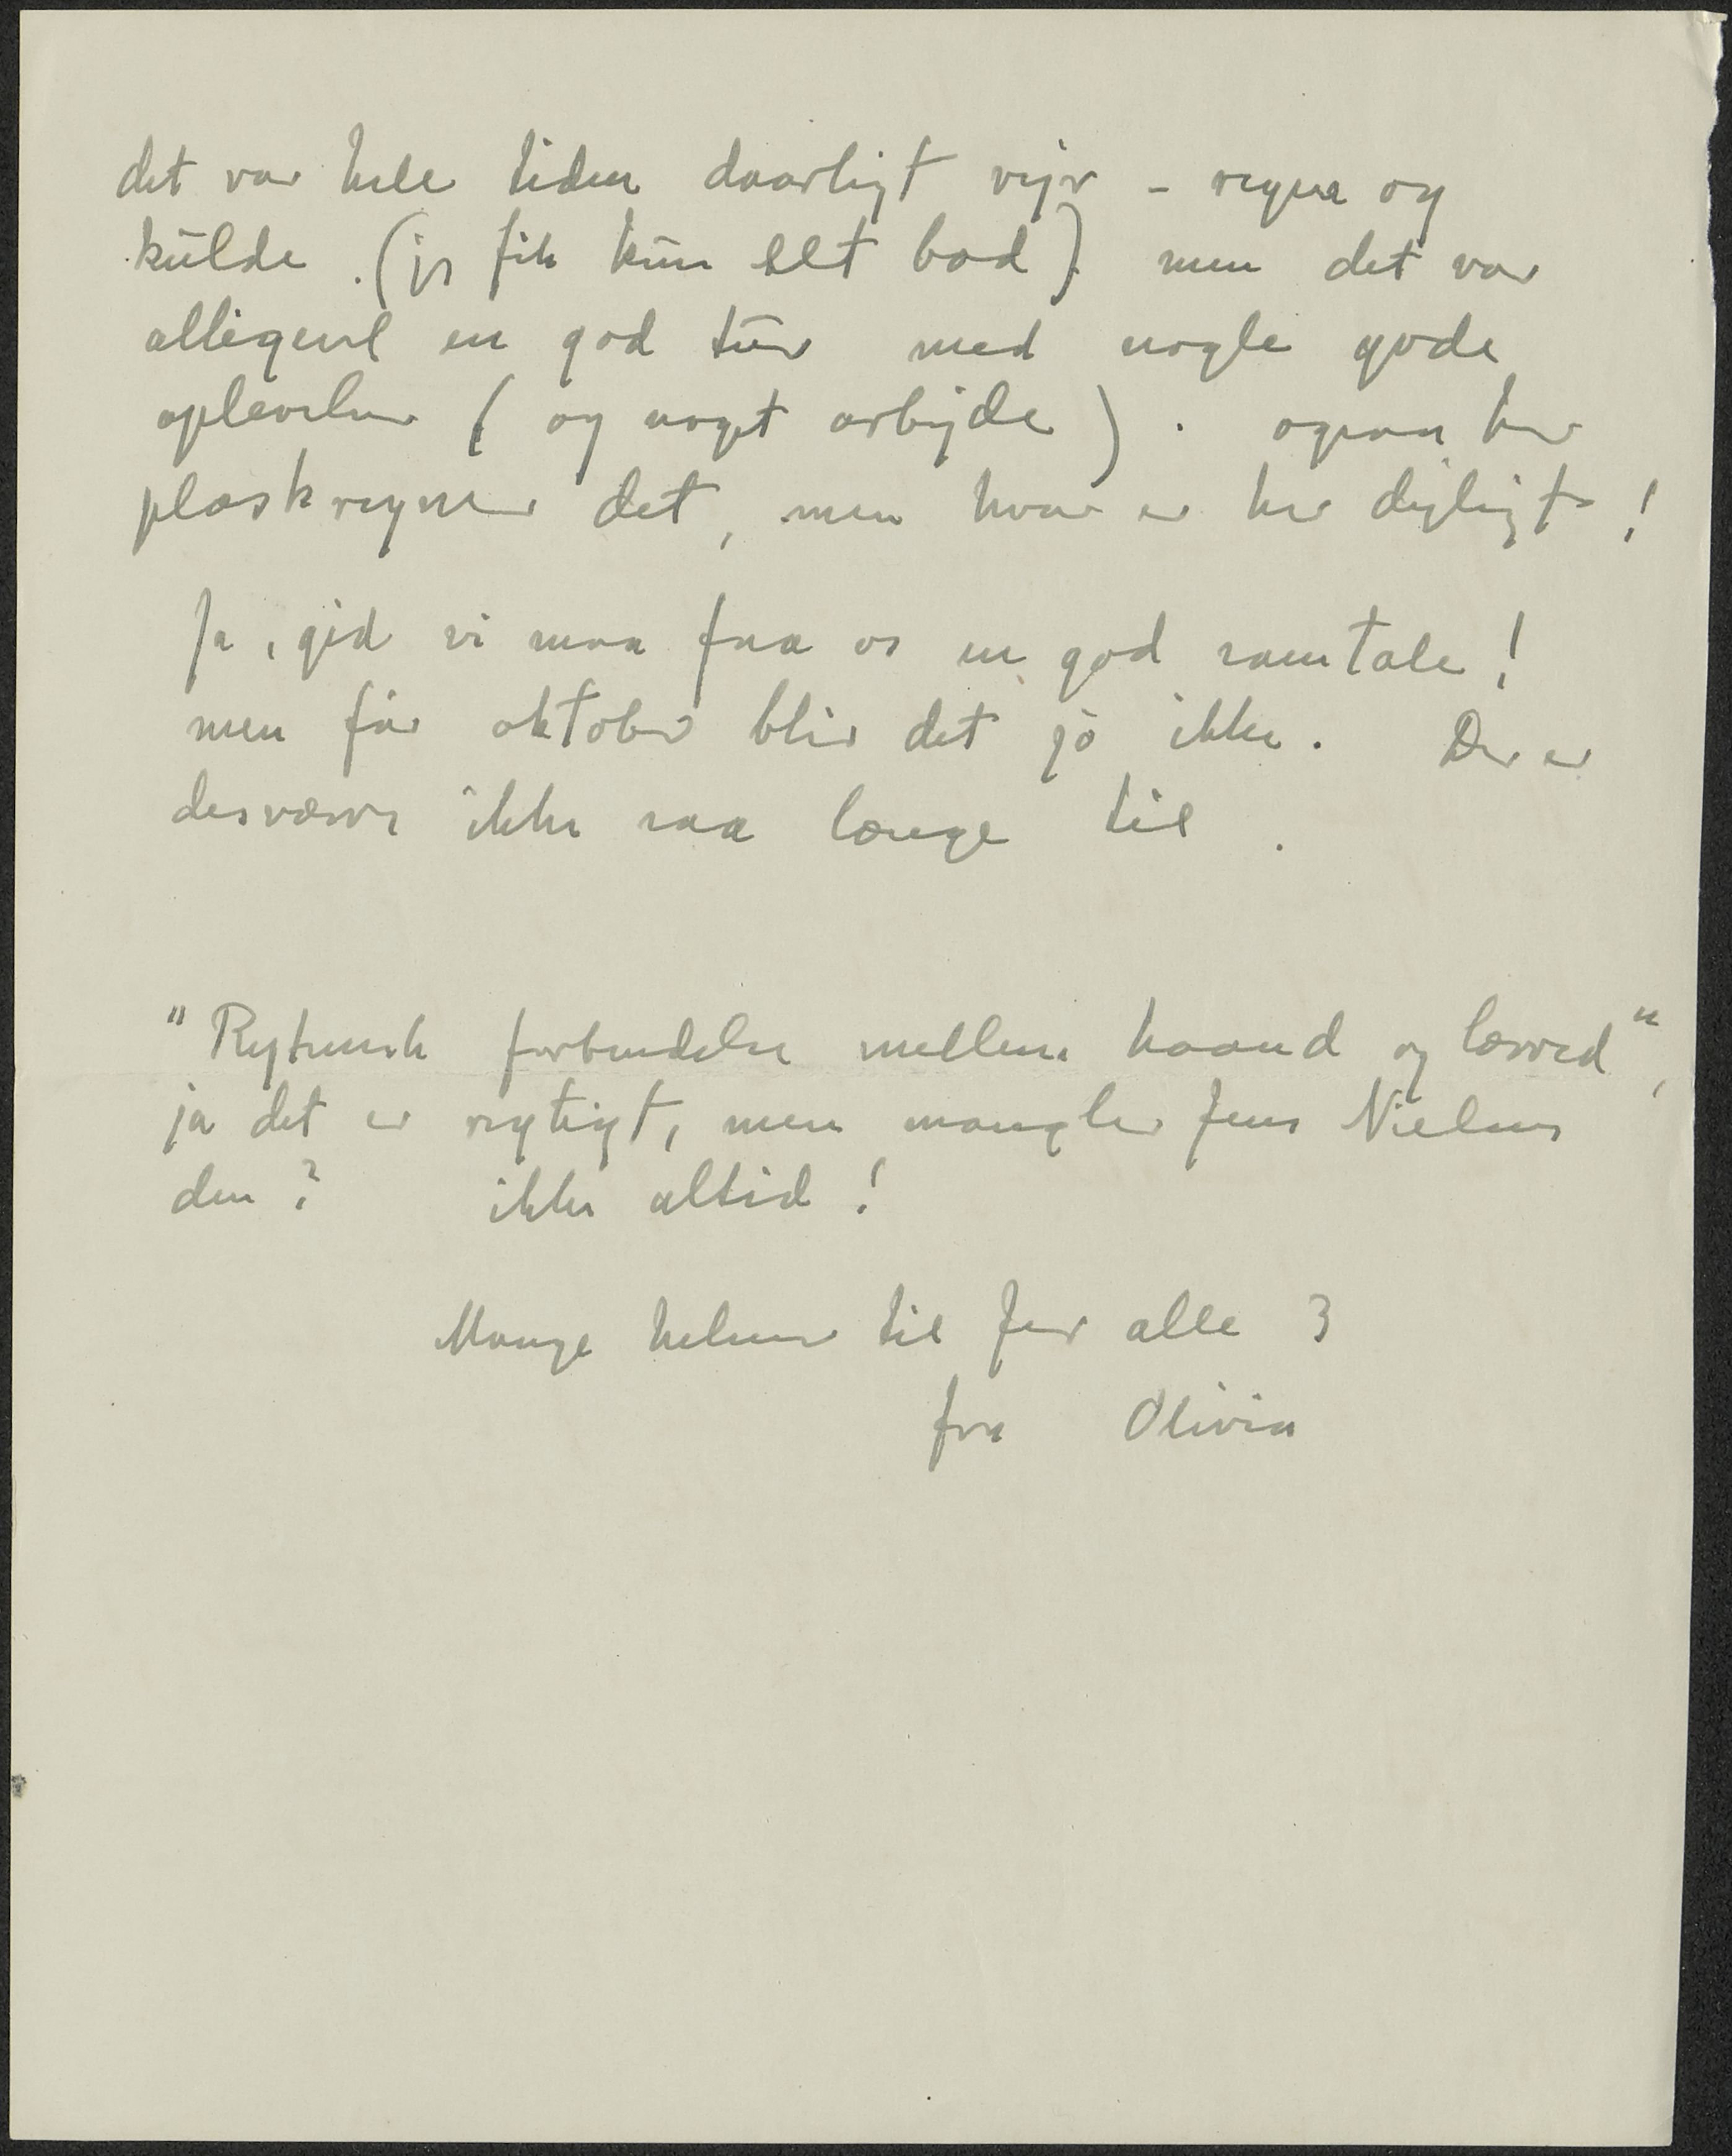 det var hele tiden daarligt vejr – regn og
kulde. (jeg fik kun eet bad) men det var
alligevel en god tur med nogle gode
oplevelser (og noget arbejde). ogsaa her
plaskregner det, men hvor er her dejligt!
Ja, gid vi maa faa os en god samtale!
men før oktober blir det jo ikke. Der er
desværre ikke saa længe til.
"Rytmisk forbindelse mellem haand og lærred",
ja det er rigtigt, men mangler Jens Nielsen
den? ikke altid!
Mange hilsener til Jer alle 3
fra Olivia